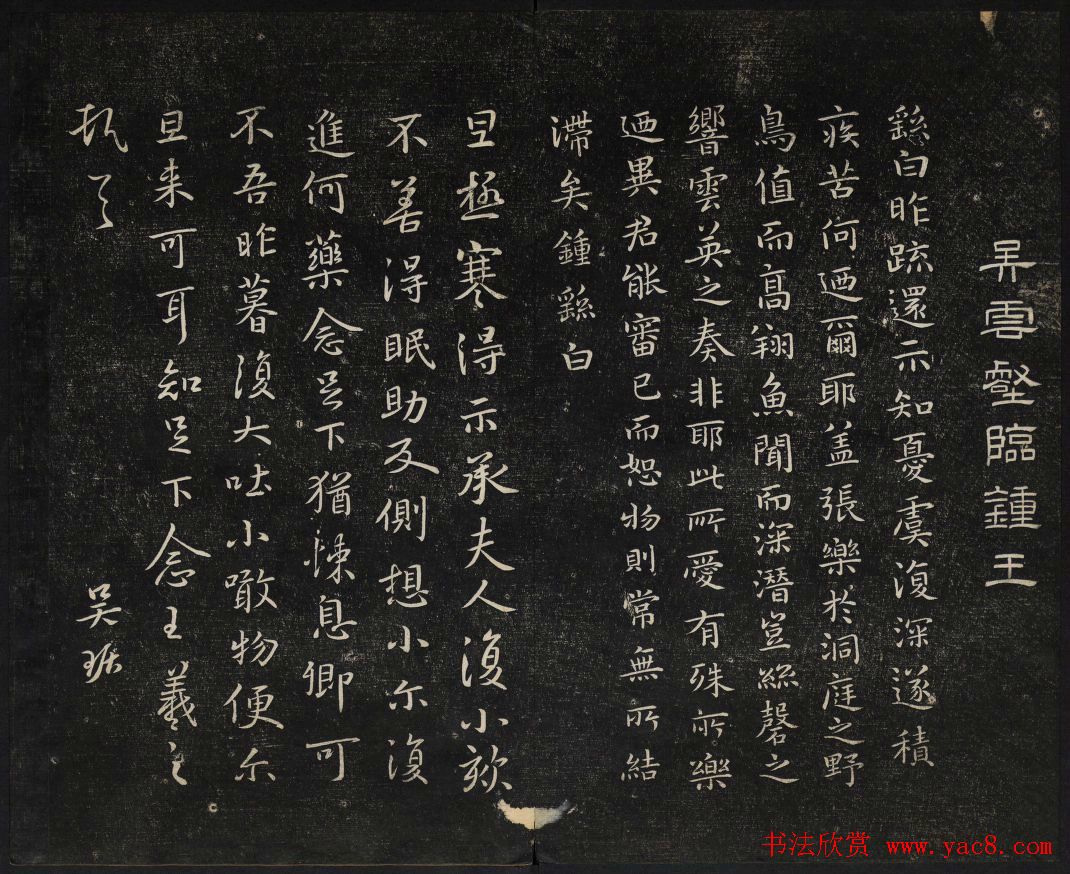 吴雲壑臨鍾王
繇白昨疏還示知憂虞復深遂積
疾苦何迺爾耶盖張樂於洞庭之野
鳥值而高翔魚聞而深潛豈絲磬之
響雲英之奏非耶此所愛有殊所樂
迺異君能審己而恕物則常無所結
滯矣鍾繇白
旦極寒得示承夫人復小欬
不善得眠助反側想小尔復
進何藥念足下猶悚息卿可
不吾昨暮復大吐小噉物便尔
旦来可耳知足下念王羲之
頓首
吴琚
书法欣赏 www.yac8.com